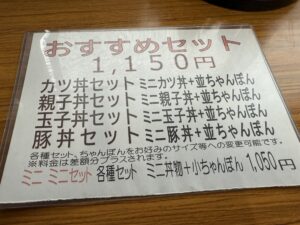 おすすめセット
1,150円
カツ丼セット ミニカツ丼+並ちゃんぽん
親子丼セット ミニ親子丼+並ちゃんぽん
玉子丼セット ミニ玉子丼+並ちゃんぽん
豚丼セット ミニ豚丼+並ちゃんぽん
各種セット、ちゃんぽんをお好みのサイズ等への変更可能です。
※料金は差額分プラスされます。
ミニ ミニセット 各種セット ミニ丼物+小ちゃんぽん 1,050円